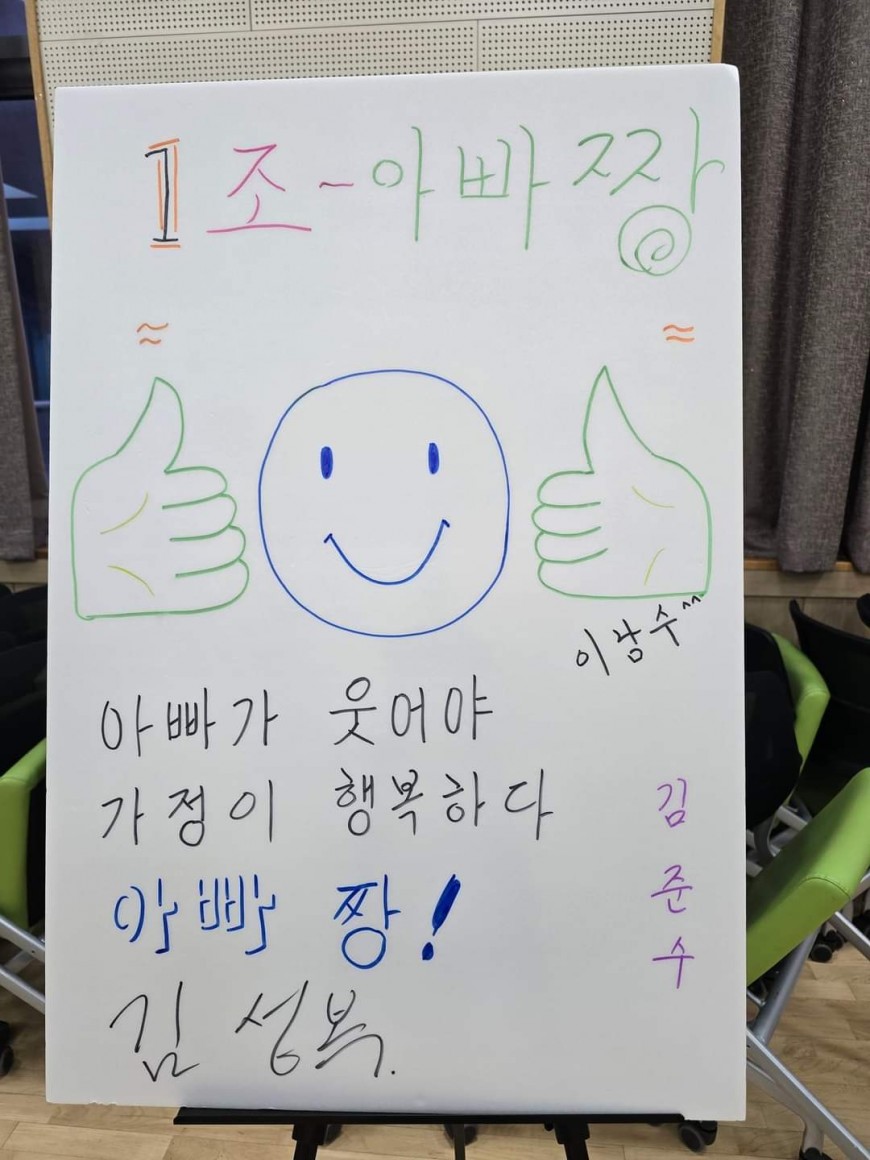 1조~아빠짱
이남수^^
아빠가 웃어야
가정이 행복하다
아빠 짱!
김준수
김성복.